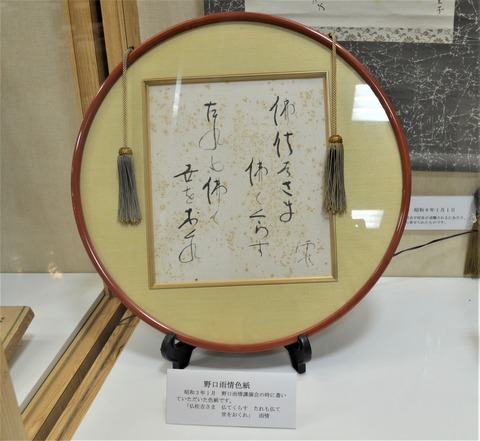 佛佐吉さま
佛てくらす
雨
たれも佛て
世をおくれ
野口雨情色紙
昭和3年1月 野口雨情講演会の時に書い
ていただいた色紙です。
「仏佐吉さま 仏てくらす たれも仏て
世をおくれ」 雨情
昭和8年1月1日